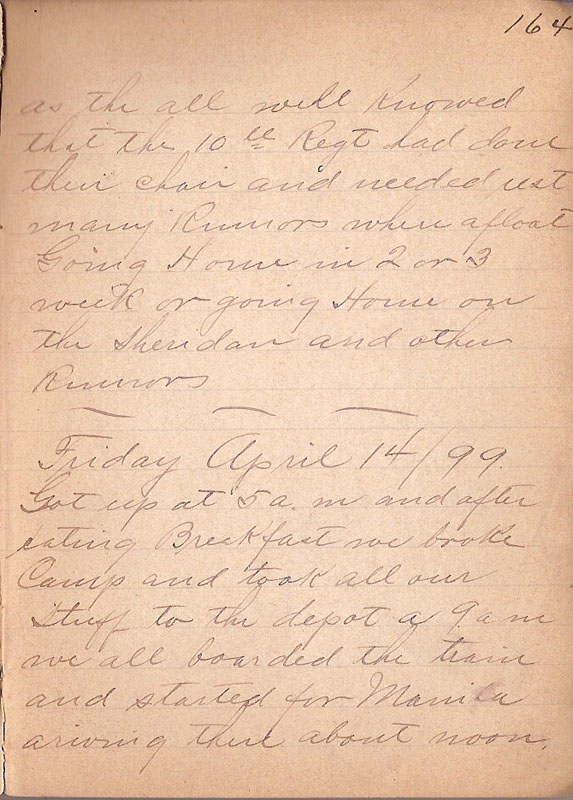 164
as the all well Knowed
that the 10th Regt had done
their chair and needed rest
many Rumors where afloat
Going Home in 2 or 3
week or going Home on
the Sheridan and other
Rumors
Friday April 14/99.
Got up at 5 a.m and after
eating Breakfast we broke
Camp and took all our
Stuff to the depot a 9 a m
we all boarded the train
and started for Manila
ariving there about noon.